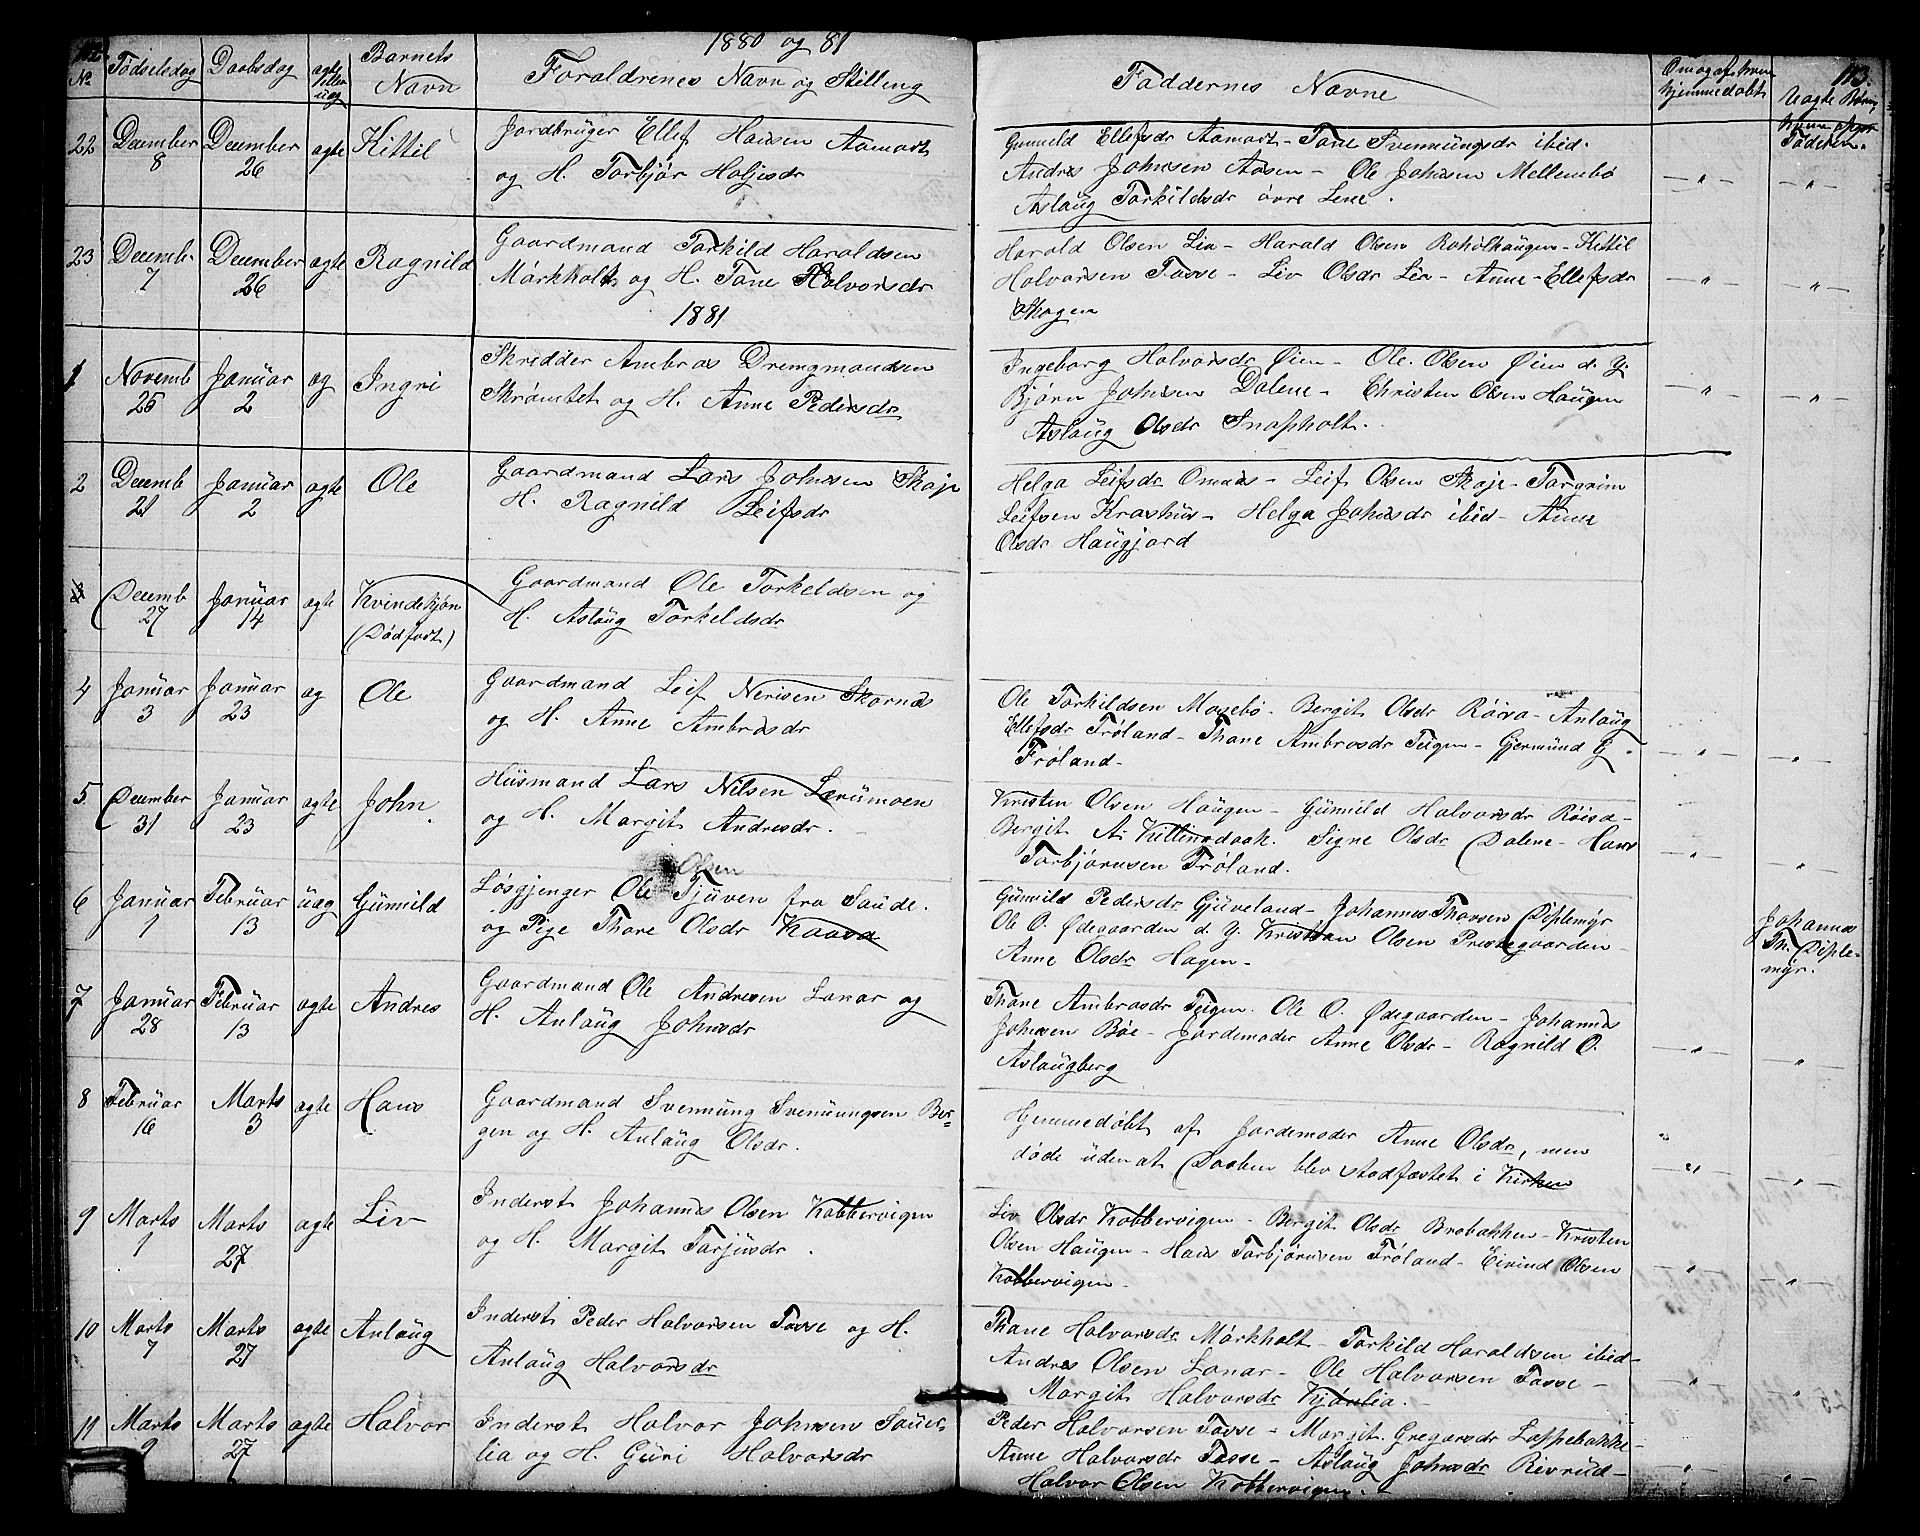 1880 og 81
No Fødselsdag Daabsdag ægte eller uæg Barnets Navn Forældrenes Navn og Stilling
Faddernes Navne
113.
Om og af hvem hjemmedøbt
Uægte Børn,
Faderen.
22 December 8 December 26 ægte Kittil Jordbruger Ellef Hansen Aamodt
og H. Torbjør Holjesdr
Gunnild Ellefsdr Aamodt - Tone Svennungsdr ibid.
Andres Johnsen Aasen - Ole Johnsen Mellembø
Aslaug Torkildsdr øvre Lene.
23 Decemb. 7 December 26 ægte Ragnild Gaardmand Torkild Haraldsen
Mörkholt og H. Tone Halvorsdr
Harald Olsen Lia - Harald Olsen Roholthaugen - Kittil
Halvorsen Tosse - Liv Olsdr Lia - Anne Ellefsdr
Skogen
1881
1 Novemb 25 Januar 2 æg Ingri Skrædder Ambros Drengmandsen
Skrømtet og H. Anne Pedersdr
Ingeborg Halvorsdr Øien - Ole Olsen Øien d. Y.
Bjørn Johnsen Dalene - Christen Olsen Haugen
Aslaug Olsdr Snapholt.
2 Decemb 21 Januar 2 ægte Ole Gaardmand Lars Johnsen Skoje
H. Ragnild Leifsdr
Helga Leifsdr Omnes - Leif Olsen Skoje - Torgrim
Leifsen Krashus - Helga Johnsdr ibid - Anne
Olsdr Haugjord
3 Decemb 27 Januar 14 ægte Kvindekjøn
(Dødfødt)
Gaardmand Ole Torkeldsen og
H. Aslaug Torkeldsdr
4 Januar 3 Januar 23 æg Ole Gaardmand Leif Nerisen Skornes
og H. Anne Ambrosdr
Ole Torkildsen Mosebø - Bergit Olsdr Röisa - Anlaug
Ellefsdr Frøland - Thone Ambrosdr Teigen - Gjermund G.
Frøland -
5 December 31 Januar 23 ægte John. Husmand Lars Nilsen Lerumoen
og H. Margit Andresdr.
Kristen Olsen Haugen - Gunnild Halvorsdr Röisa -
Bergit A. Killingdock. Signe Olsdr Dalene - Hans
Torbjørnsen Frøland.
6 Januar 1 Februar 13 uæg Gunnild Løsgjenger Ole Olsen Tjuven fra Saude.
og Pige Thone Olsdr Kaasa
Gunnild Pedersdr Gjuveland - Johannes Thovsen Diplemyr
Ole O. Ødegaarden d. Y. Kristian Olsen Prestegaarden -
Anne Olsdr Hagen -
Johannes
Th. Diple-
myr.
7 Januar 28 Februar 13 ægte Andres Gaardmand Ole Andresen Lonar og
H. Anlaug Johnsdr
Thone Ambrosdr Teigen. Ole O. Ødegaarden - Johannes
Johnsen Bøe - Jordemoder Anne Olsdr - Ragnild O.
Aslaugberg
8 Februar 16 Marts 3 ægte Hans Gaardmand Svennung Svennungsen Ber-
gen og H. Anlaug Olsdr.
Hjemmedøbt af Jordemoder Anne Olsdr, men
døde uden at Daaben blev stadfæstet i Kirken
9 Marts 1 Marts 27 ægte Liv Inderst Johannes Olsen Kobbervigen
og H. Margit Tarjusdr.
Liv Olsdr Kobbervigen - Bergit Olsdr Brobakken - Kristen
Olsen Haugen - Hans Torbjørnsen Frøland - Eivind Olsen
Kobbervigen -
10 Marts 7 Marts 27 ægte Anlaug Inderst Peder Halvorsen Tosse og H.
Anlaug Halvorsdr
Thone Halvorsdr Mörkholt - Torkild Haraldsen ibid -
Andres Olsen Lonar - Ole Halvorsen Tosse -
Margit Halvorsdr Kjønlia.
11 Marts 9 Marts 27 ægte Halvor Inderst Halvor Johnsen Sauer-
lia og H. Guri Halvorsdr
Peder Halvorsen Tosse - Margit Gregarsdr Loppebakke -
Anne Halvorsdr Tosse - Aslaug Johnsdr Rivrud -
Halvor Olsen Kobbervigen. -